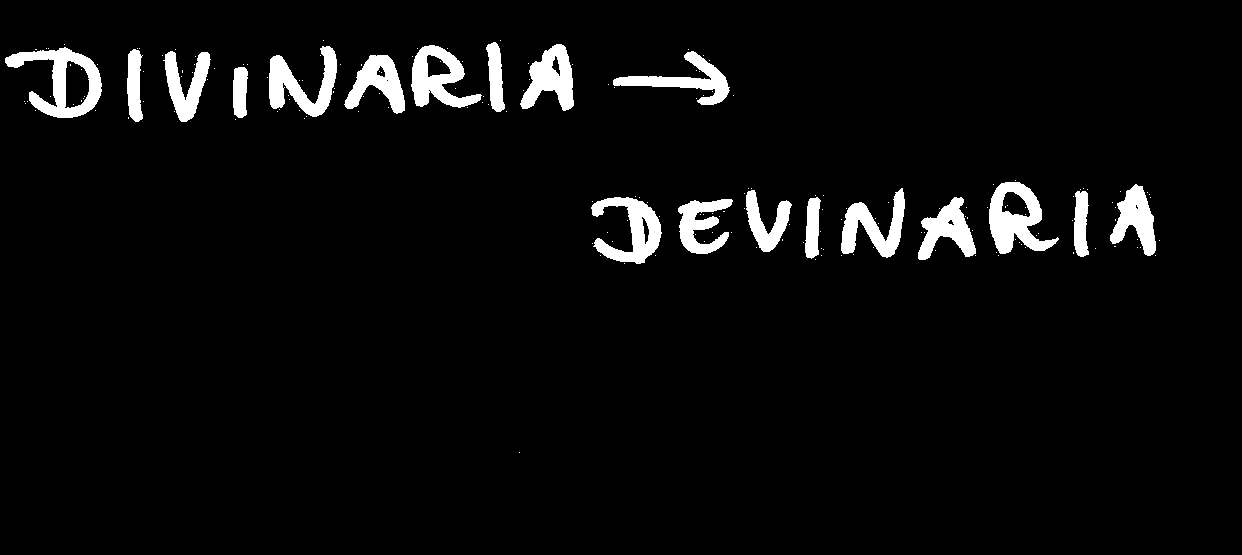 DIVINARIA →
DEVINARIA